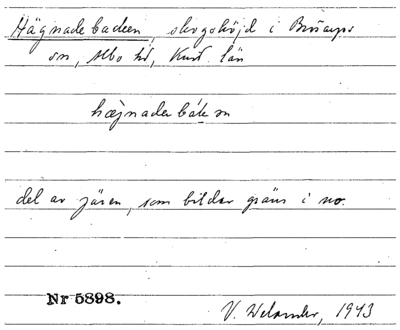 Hägnadebacken, skogshöjd i Brösarps
sn, Albo hd, Krist. län
hæjnadebák en
del av jären, som bildar gräns i no.
Nr 5898.
V. Welander, 1943